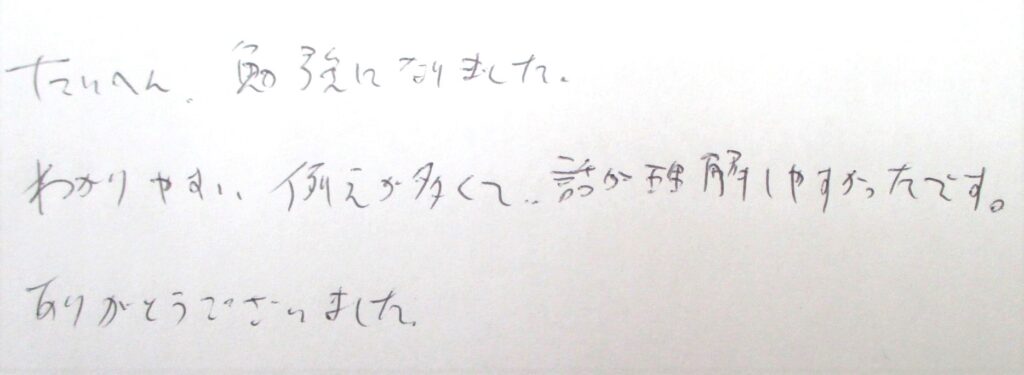 たいへん、勉強になりました。
わかりやすい例えが多くて、話が理解しやすかったです。
ありがとうございました。